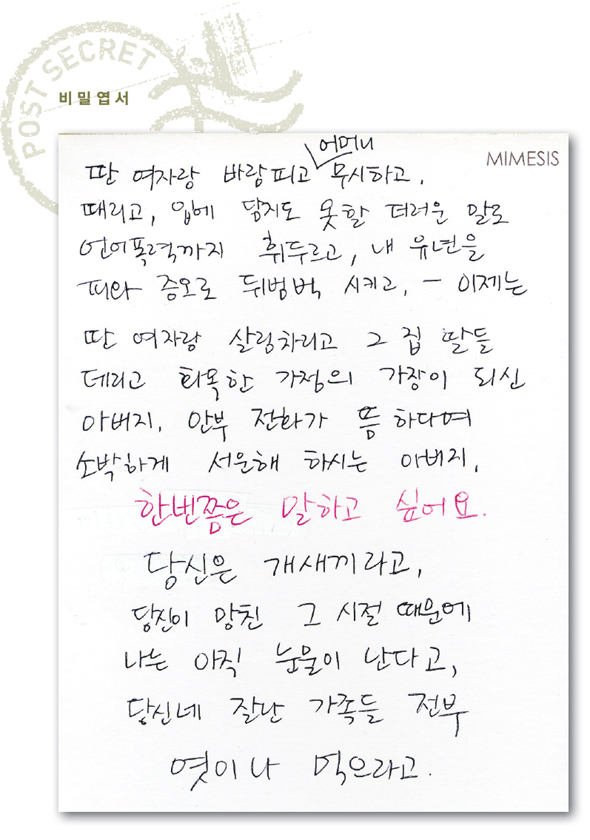 POST SECRET
비밀엽서
MIMESIS
어머니
딴 여자랑 바람피고 ∨ 무시하고,
때리고, 입에 담지도 못할 더러운 말로
언어폭력까지 휘두르고, 내 유년을
피와 증오로 뒤범벅 시키고, – 이제는
딴 여자랑 살림차리고 그 집 딸들
데리고 화목한 가정의 가장이 되신
아버지, 안부 전화가 뜸하다며
소박하게 서운해 하시는 아버지,
한번쯤은 말하고 싶어요.
당신은 개새끼라고,
당신이 망친 그 시절 때문에
나는 아직 눈물이 난다고,
당신네 잘난 가족들 전부
엿이나 먹으라고.